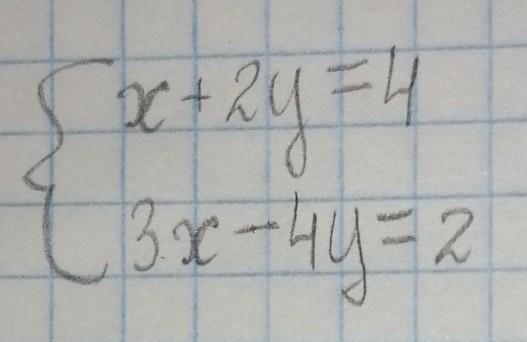 x+2y=4
3x-4y=2